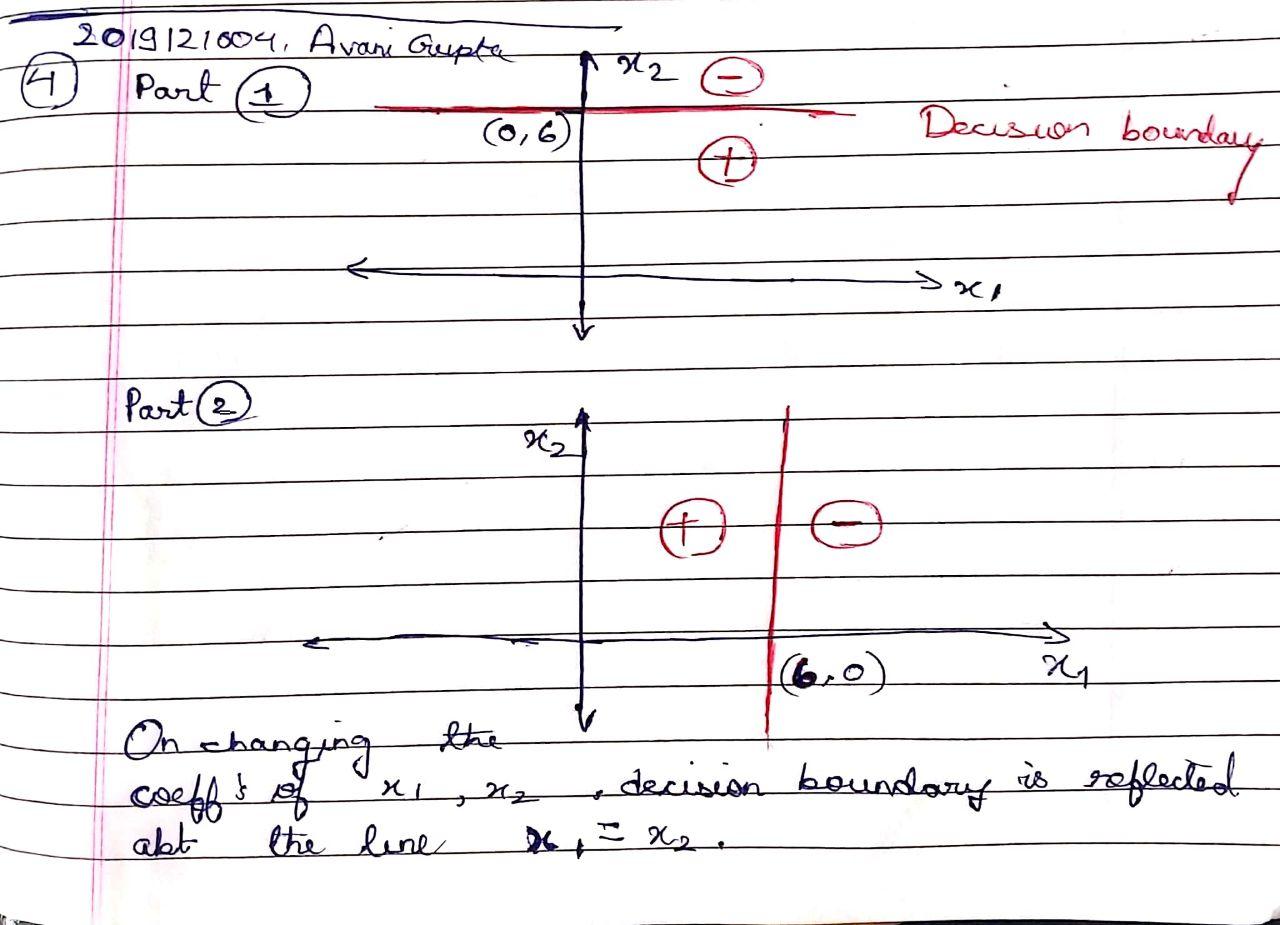 2019121004, Avani Gupta
④ Part ①
x₂ ⊖
(0,6)
Decision boundary
⊕
x₁
Part ②
x₂
⊕ ⊖
(6,0)
x₁
On changing the
coeff's of x₁, x₂, decision boundary is reflected
abt the line x₁ = x₂.